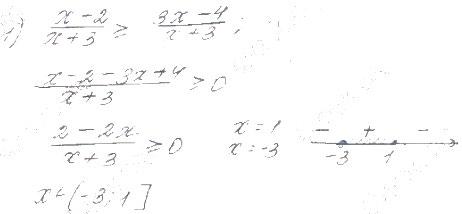 1) (x-2)/(x+3) ≥ (3x-4)/(x+3);
(x-2-3x+4)/(x+3) ≥ 0
(2-2x)/(x+3) ≥ 0
x=1
x=-3
- + -
-3 1
x∈(-3;1]